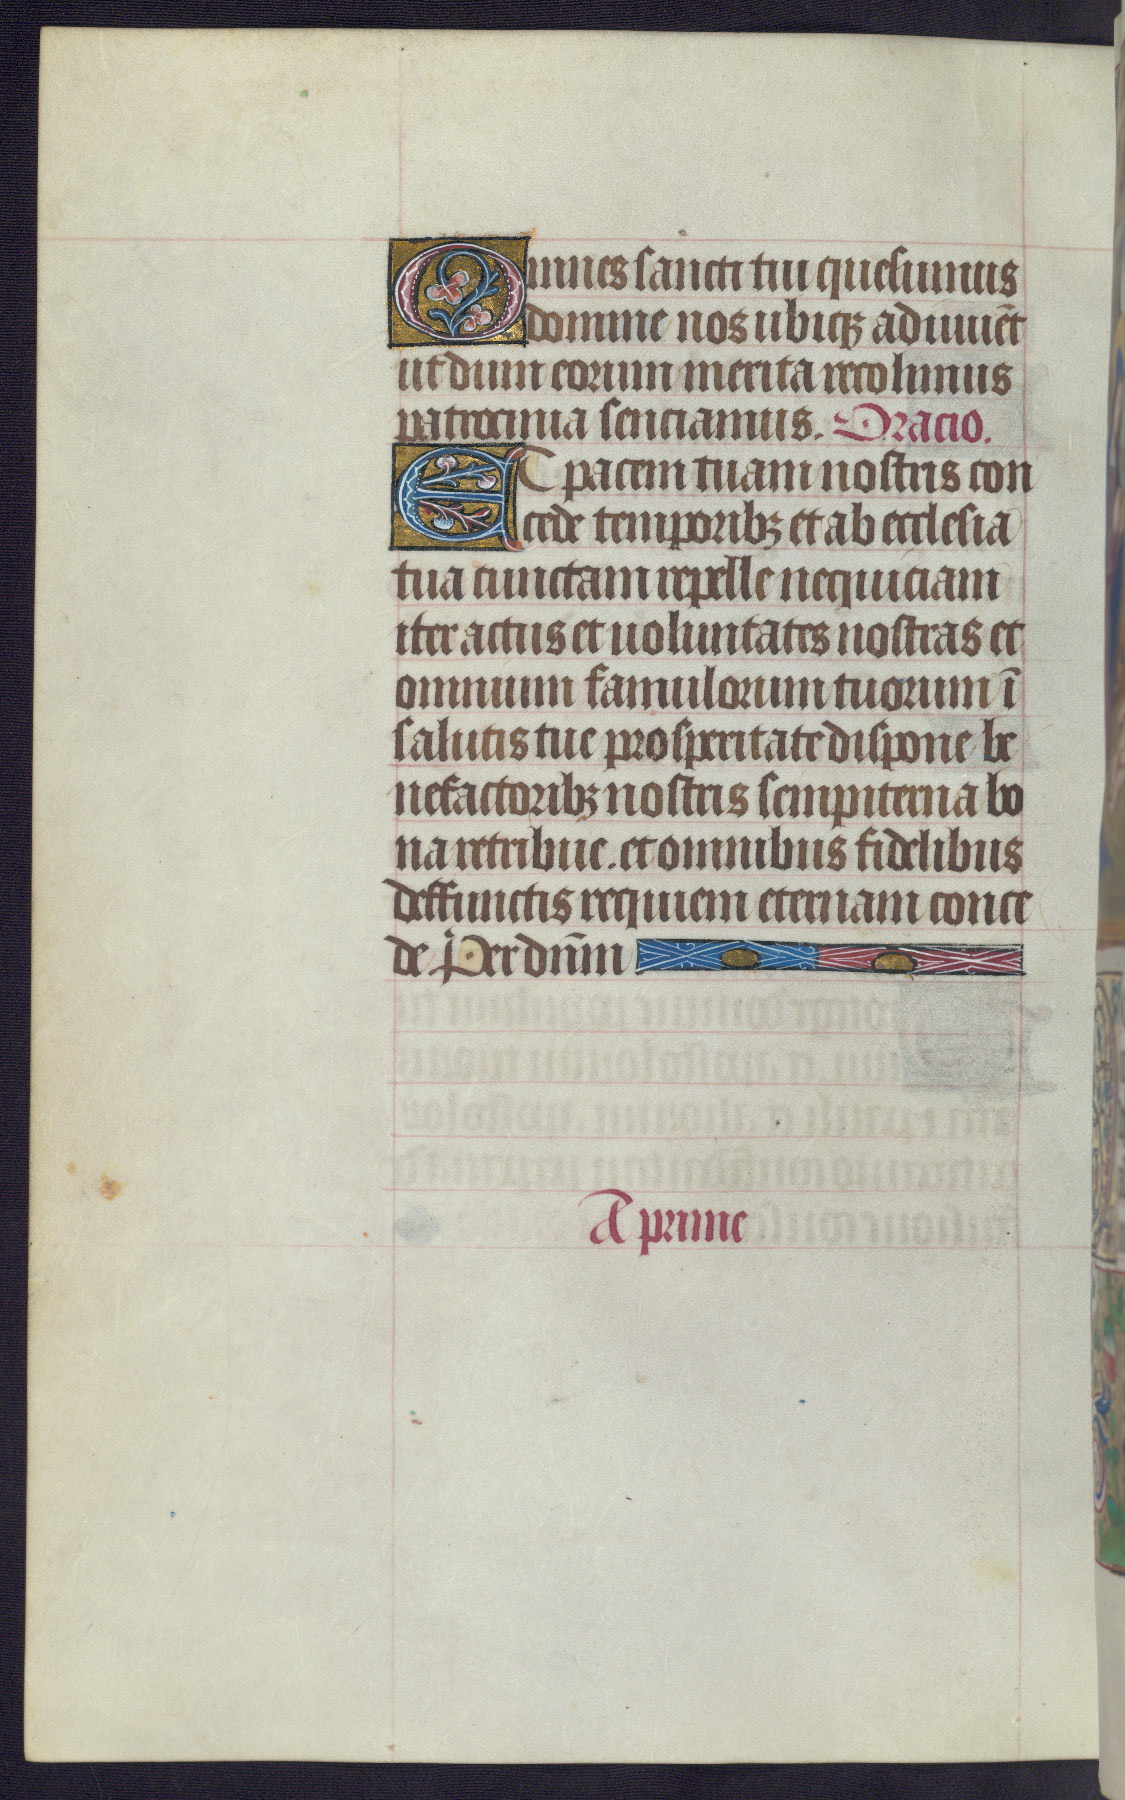 Omnes sancti tui quesumus
domine nos ubiqꝫ adiuuēt
ut dum eorum merita recolimus
patrocinia senciamus. Oracio.
ET pacem tuam nostris con
cede temporibꝫ et ab ecclesia
tua cunctam repelle nequiciam
iter actus et uoluntates nostras et
omnium famulorum tuorum ī
salutis tue prosperitate dispone be
nefactoribꝫ nostris sempiterna bo
na retribue. et omnibus fidelibus
deffunctis requiem eternam conce
de. Per dn̄m
A prime